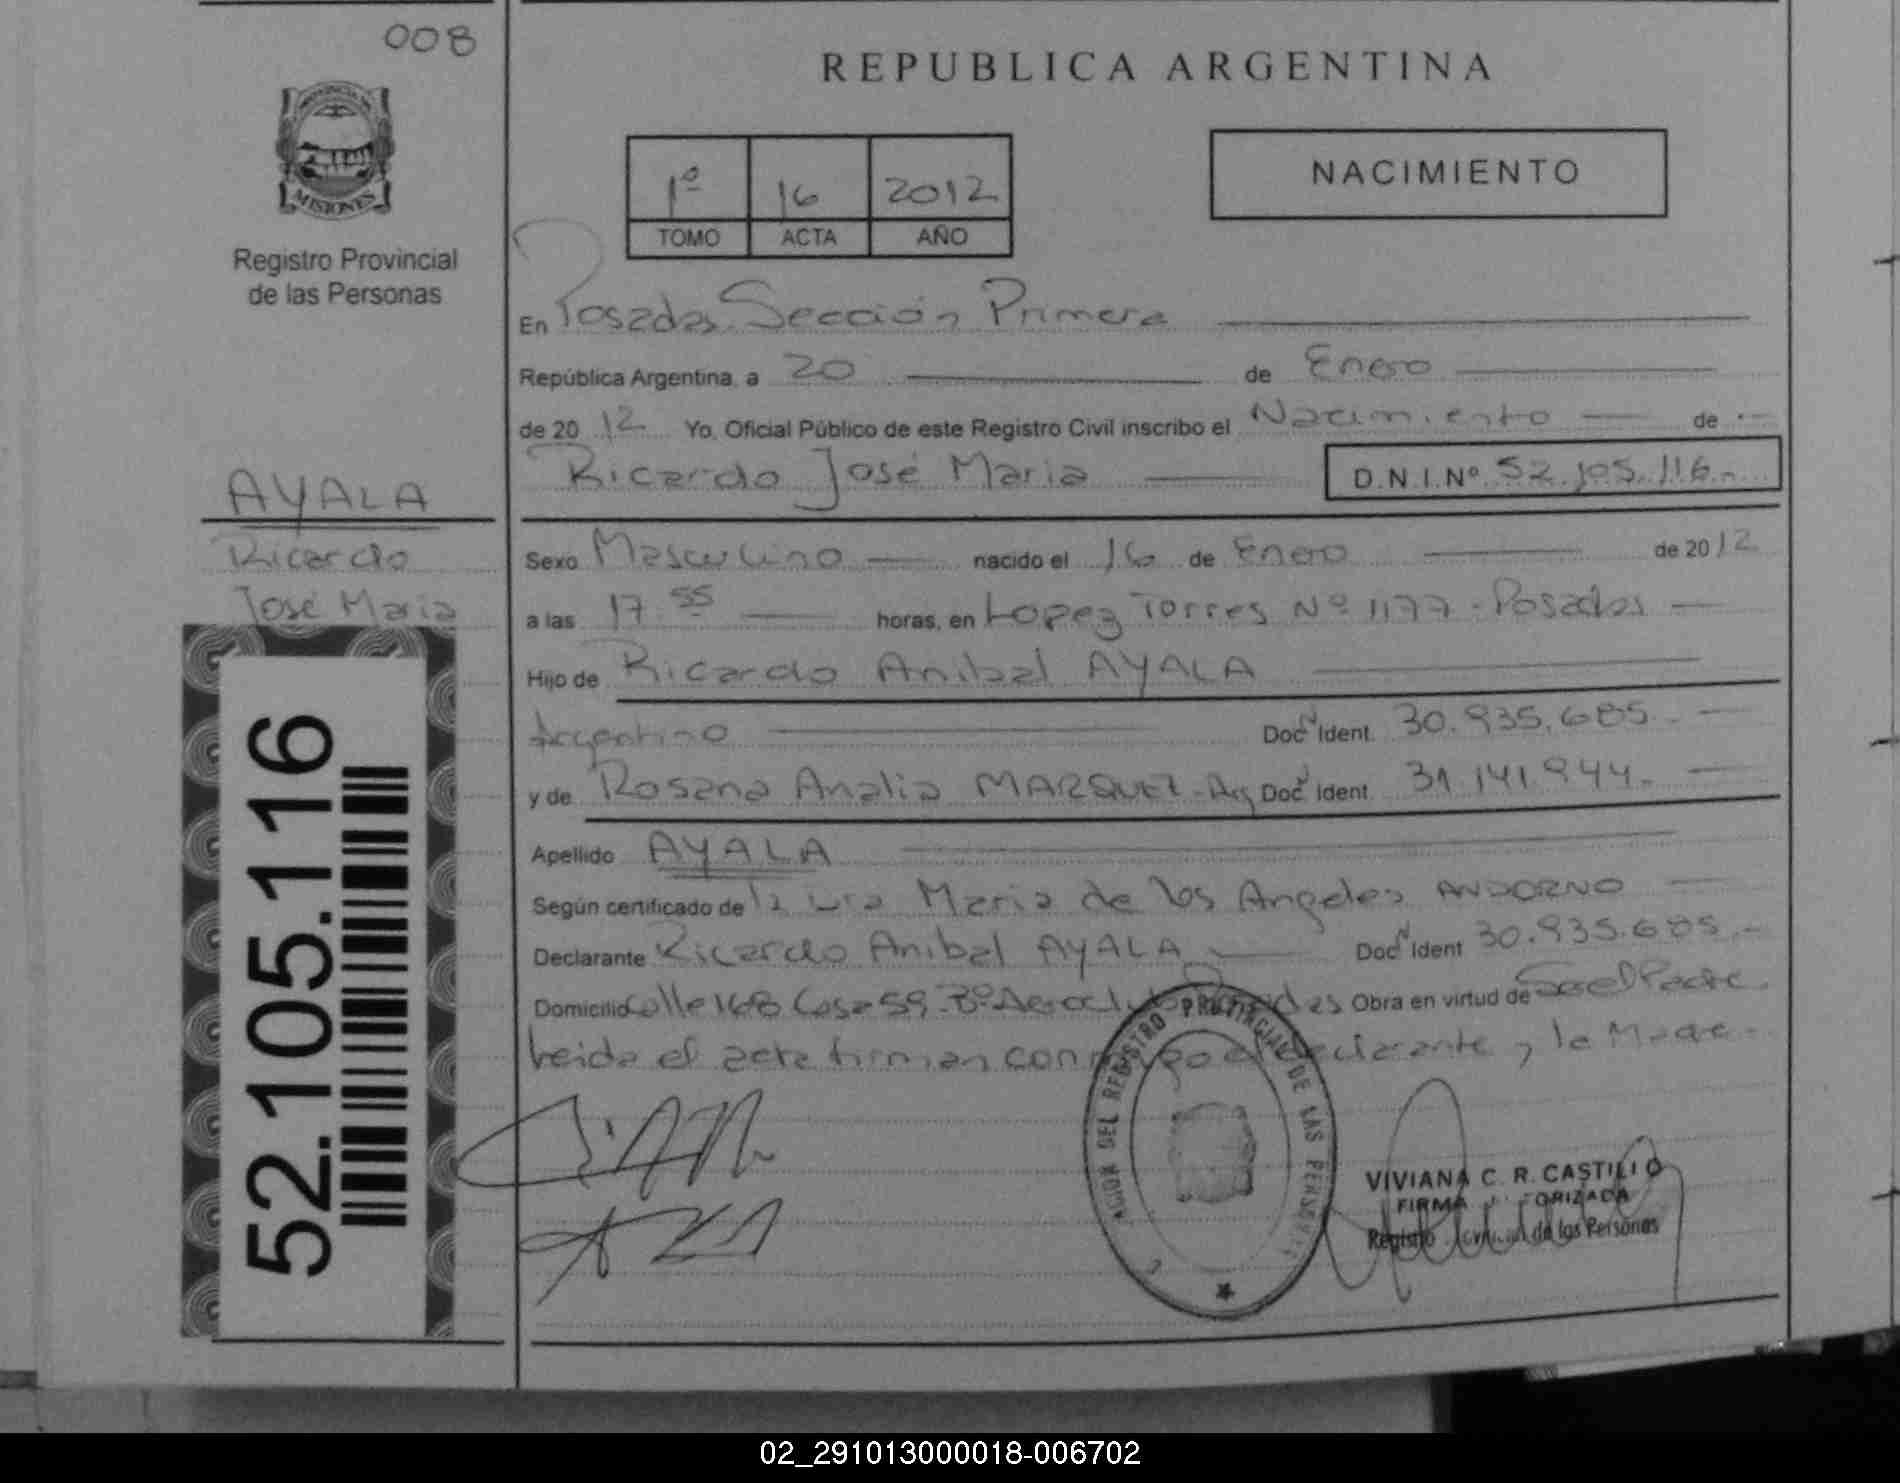 008
REPUBLICA ARGENTINA
PROVINCIA DE
MISIONES
Registro Provincial
de las Personas
1º 16 2012
TOMO ACTA AÑO
NACIMIENTO
En Posadas Sección Primera
República Argentina, a 20 de Enero
de 20 12 Yo, Oficial Público de este Registro Civil inscribo el Nacimiento de
Ricardo José Maria D.N.I.Nº 52.105.116.-
AYALA
Ricardo
José Maria
Sexo Masculino nacido el 16 de Enero de 2012
a las 17.55 horas, en Lopez Torres Nº 1177 - Posadas
Hijo de Ricardo Anibal AYALA
Argentino Doc. Ident. 30.935.685
y de Rosana Analia MARQUEZ - Arg Doc. Ident. 31.141.944.-
Apellido AYALA
Según certificado de la Maria de los Angeles ANDORNO
Declarante Ricardo Anibal AYALA Doc. Ident 30.935.685.-
Domicilio Calle 168 Casa 59 Bº Aeroclub Posadas Obra en virtud de Ser el Padre
leida el acta firman conmigo el declarante y la Madre.-
52.105.116
DEL REGISTRO PROVINCIAL DE LAS PERSONAS
VIVIANA C. R. CASTILLO
FIRMA AUTORIZADA
Registro de las Personas
02_291013000018-006702